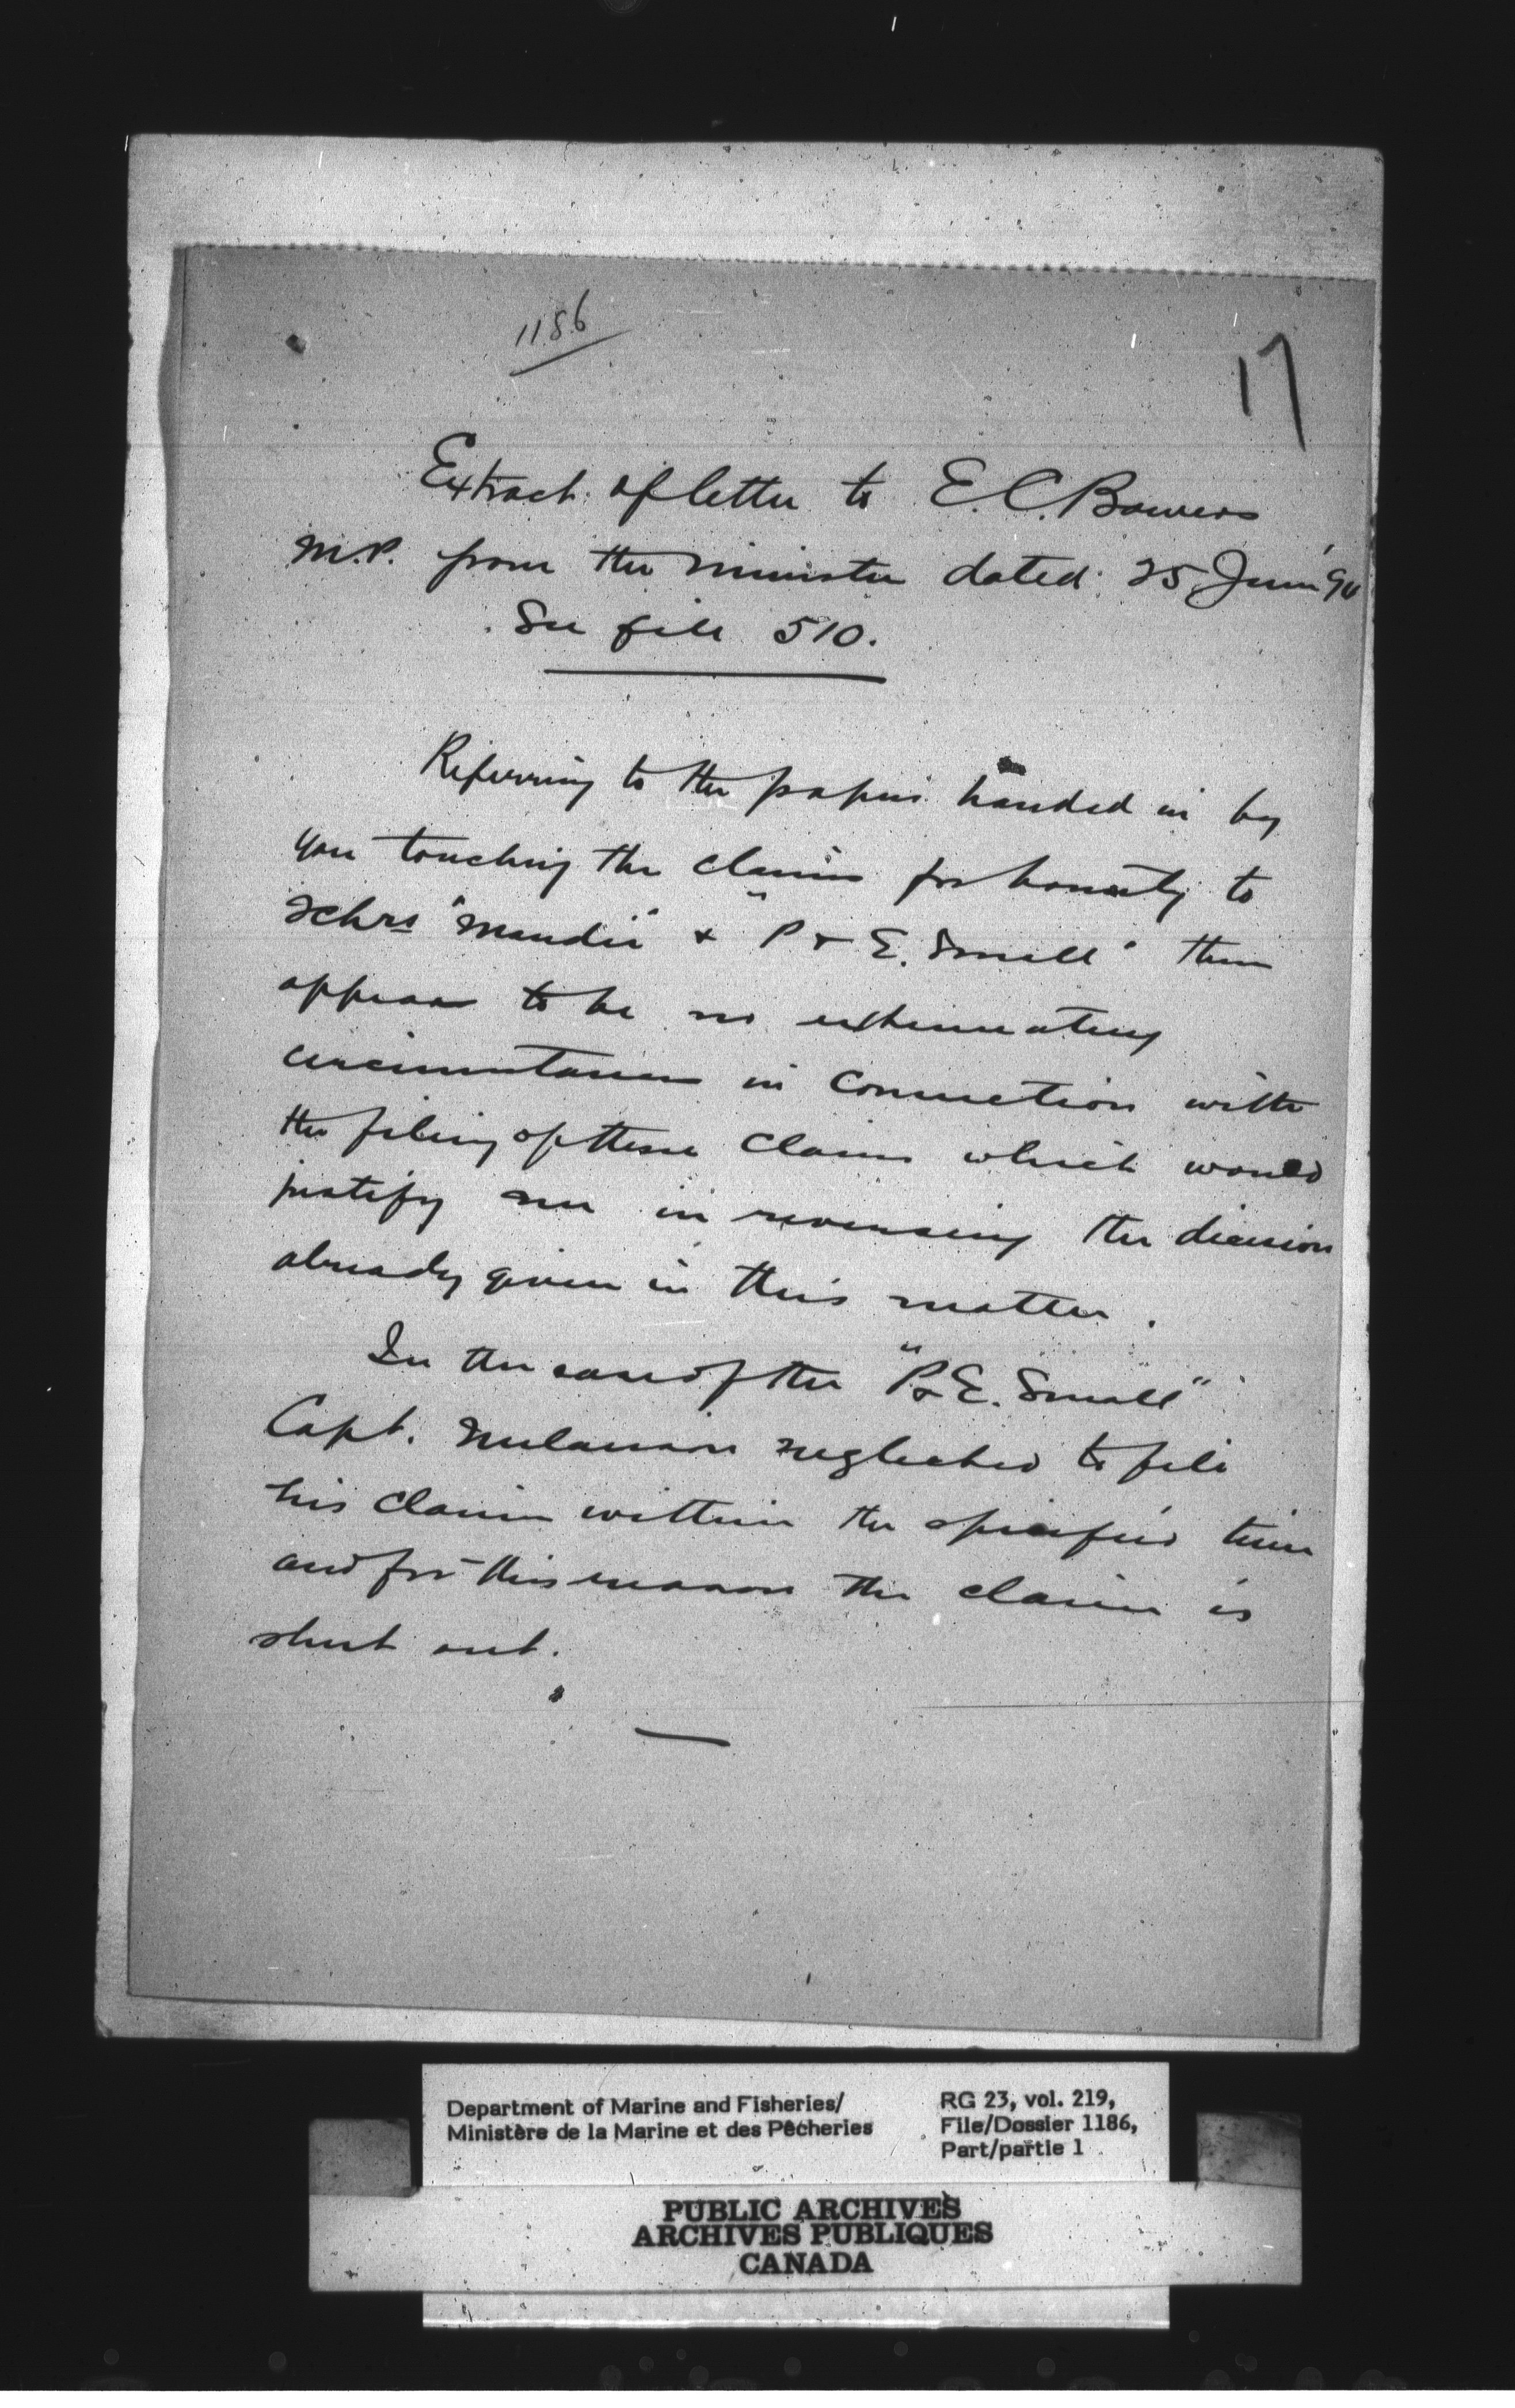 1186
17
Extract of letter to E. C. Bowers
M.P. from the minister dated 25 June '94
See file 510.
Referring to the papers handed in by
you touching the claims for bounty to
Schrs "Maudie" & "P & E. Small" there
appears to be no extenuating
circumstances in connection with
the filing of these claims which would
justify me in reversing the decision
already given in this matter.
In the case of the "P & E. Small"
Capt. neglected to file
his claim within the specified time
and for this reason the claim is
shut out.
Department of Marine and Fisheries/
Ministère de la Marine et des Pêcheries
RG 23, vol. 219,
File/Dossier 1186,
Part/partie 1
PUBLIC ARCHIVES
ARCHIVES PUBLIQUES
CANADA